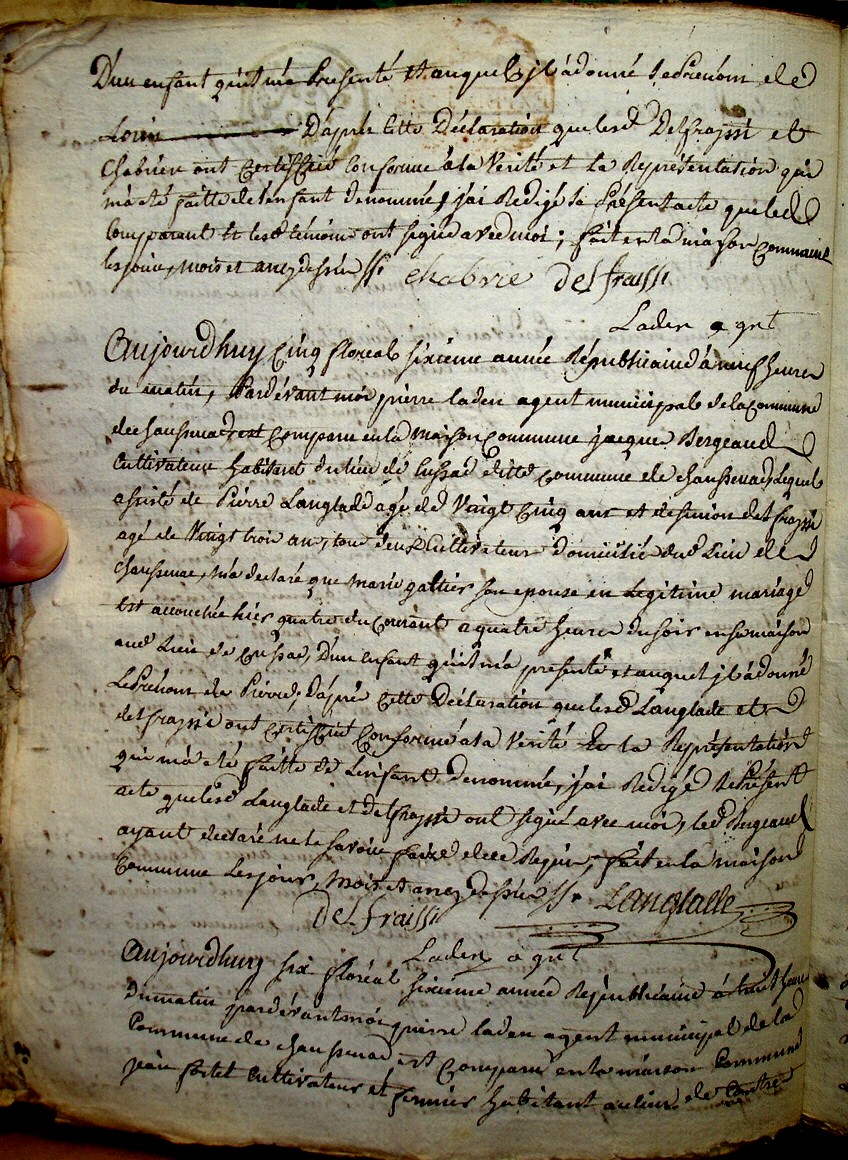 D'un enfant qu'il m'a presenté et auquel jl a donné le prenom de
Louis D'après Cette Déclaration que lesd Delfraissi et
Chabrier ont Certiffié Conforme a la Verité et la Représentation qui
m'a eté faitte de l'enfant denommé, j'ai Redigé le présent acte que led
Comparant et lesd témoins ont signé avec moi; fait en la maison Commune
les jour, mois et an, dessus
chabrié delfraissi
Laden agnt
Aujourdhuy Cinq floreal sixieme année Républicaine à neuf heures
du matin, Pardévant moi pierre laden agent municipal de la Commune
de chaussenac est Comparu en la Maison Commune jacque Bergeaud
Cultivateur habitant du lieu de Cussac ditte Commune de chaussenac, Lequel
assisté de Pierre Langlade agé de Vaingt Cinq ans et de simon delfraissi
agé de Vaingt trois ans, tous deux Cultivateurs domiciliés dud Lieu de
chaussenac, m'a declaré que marie galtier son epouse en Legitime mariage
Est accouchée hier quatre du Courant a quatre heures du soir en sa maison
aud Lieu de Cussac, D'un enfant qu'il m'a presenté et auquel jl a donné
Le Prenom de Pierre; D'après Cette Déclaration que lesd Langlade et
delfraissi ont Certiffié Conforme a la Verité et la Représentation
qui m'a eté faitte de L'enfant denommé, j'ai Redigé le Présent
acte que lesd Langlade et delfraissi ont signé avec moi, led Bergeaud
ayant declaré ne le savoir faire de ce Requis; fait en la maison
Commune Les jour, mois et an, dessus Langlade
delfraissi
Laden agnt
Aujourdhuy six floréal sixieme année Républicaine à huit heures
du matin pardévant moi pierre laden agent municipal de la
Commune de chaussenac est Comparu en la maison Commune
jean fortet Cultivateur et fermier habitant au lieu de Contres